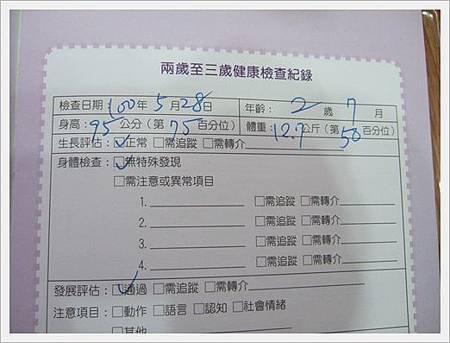 兩歲至三歲健康檢查紀錄
檢查日期：100年 5月28日 年齡：2歲7月
身高：95公分（第75百分位） 體重：12.7公斤（第50百分位）
生長評估：☑正常 □需追蹤 □需轉介
身體檢查：☑無特殊發現
□需注意或異常項目
1. □需追蹤 □需轉介
2. □需追蹤 □需轉介
3. □需追蹤 □需轉介
4. □需追蹤 □需轉介
發展評估：☑通過 □需追蹤 □需轉介
注意項目：□動作 □語言 □認知 □社會情緒
□其他